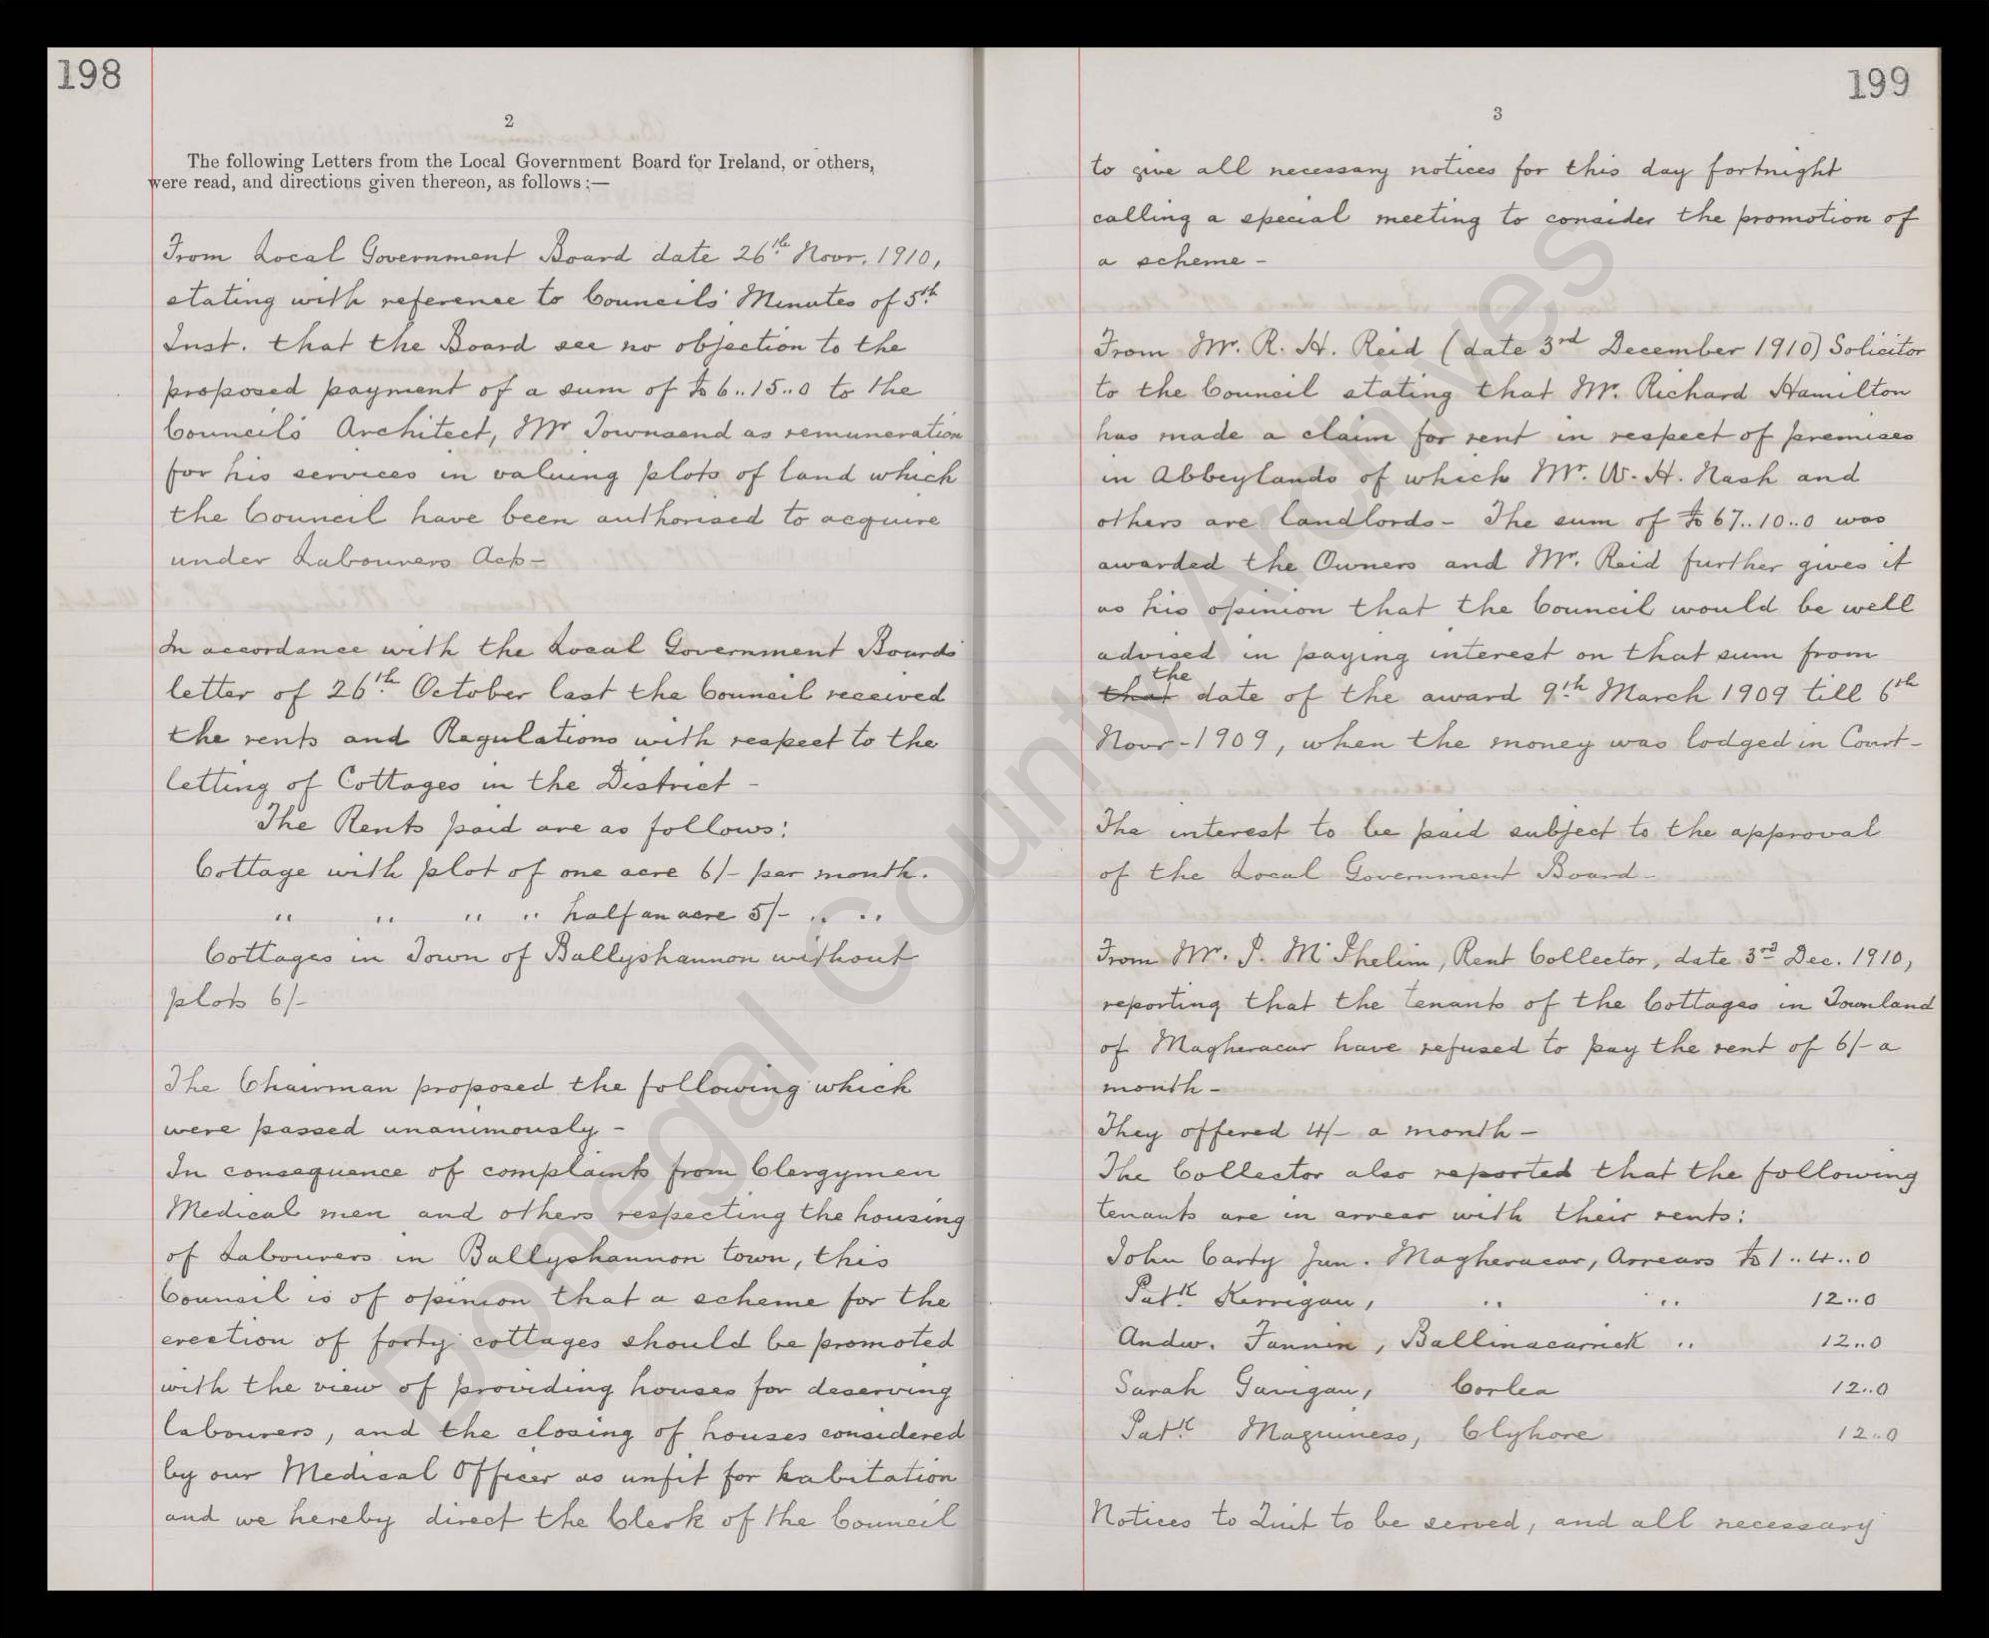 198
2
The following Letters from the Local Government Board for Ireland, or others,
were read, and directions given thereon, as follows:—
From Local Government Board date 26th Novr. 1910,
stating with reference to Councils' Minutes of 5th
Inst. that the Board see no objection to the
proposed payment of a sum of £6..15..0 to the
Council's Architect, Mr Townsend as remuneration
for his services in valuing plots of land which
the Council have been authorised to acquire
under Labourers Acts-
In accordance with the Local Government Boards
letter of 26th October last the Council received
the rents and Regulations with respect to the
letting of Cottages in the District -
The Rents paid are as follows:
Cottage with plot of one acre 6/- per month.
" " " " half an acre 5/- " "
Cottages in Town of Ballyshannon without
plots 6/-
The Chairman proposed the following which
were passed unanimously -
In consequence of complaints from Clergymen
Medical men and others respecting the housing
of Labourers in Ballyshannon town, this
Council is of opinion that a scheme for the
erection of forty cottages should be promoted
with the view of providing houses for deserving
labourers, and the closing of houses considered
by our Medical Officer as unfit for habitation
and we hereby direct the Clerk of the Council
199
3
to give all necessary notices for this day fortnight
calling a special meeting to consider the promotion of
a scheme -
From Mr. R. H. Reid (date 3rd December 1910) Solicitor
to the Council stating that Mr. Richard Hamilton
has made a claim for rent in respect of premises
in Abbeylands of which Mr. W. H. Nash and
others are landlords - The sum of £67..10..0 was
awarded the Owners and Mr. Reid further gives it
as his opinion that the Council would be well
advised in paying interest on that sum from
the
that date of the award 9th March 1909 till 6th
Novr-1909, when the money was lodged in Court-
The interest to be paid subject to the approval
of the Local Government Board-
From Mr. P. McPhelim, Rent Collector, date 3rd Dec. 1910,
reporting that the tenants of the Cottages in Townland
of Magheracar have refused to pay the rent of 6/- a
month -
They offered 4/- a month -
The Collector also reported that the following
tenants are in arrear with their rents:
John Carty Jun. Magheracar, Arrears £1..4..0
Patk. Kerrigan, " " 12..0
Andw. Fannin, Ballinacarrick " 12..0
Sarah Gavigan, Corlea 12..0
Patk. Maguiness, Clyhore 12..0
Notices to Quit to be served, and all necessary
Donegal County Archives